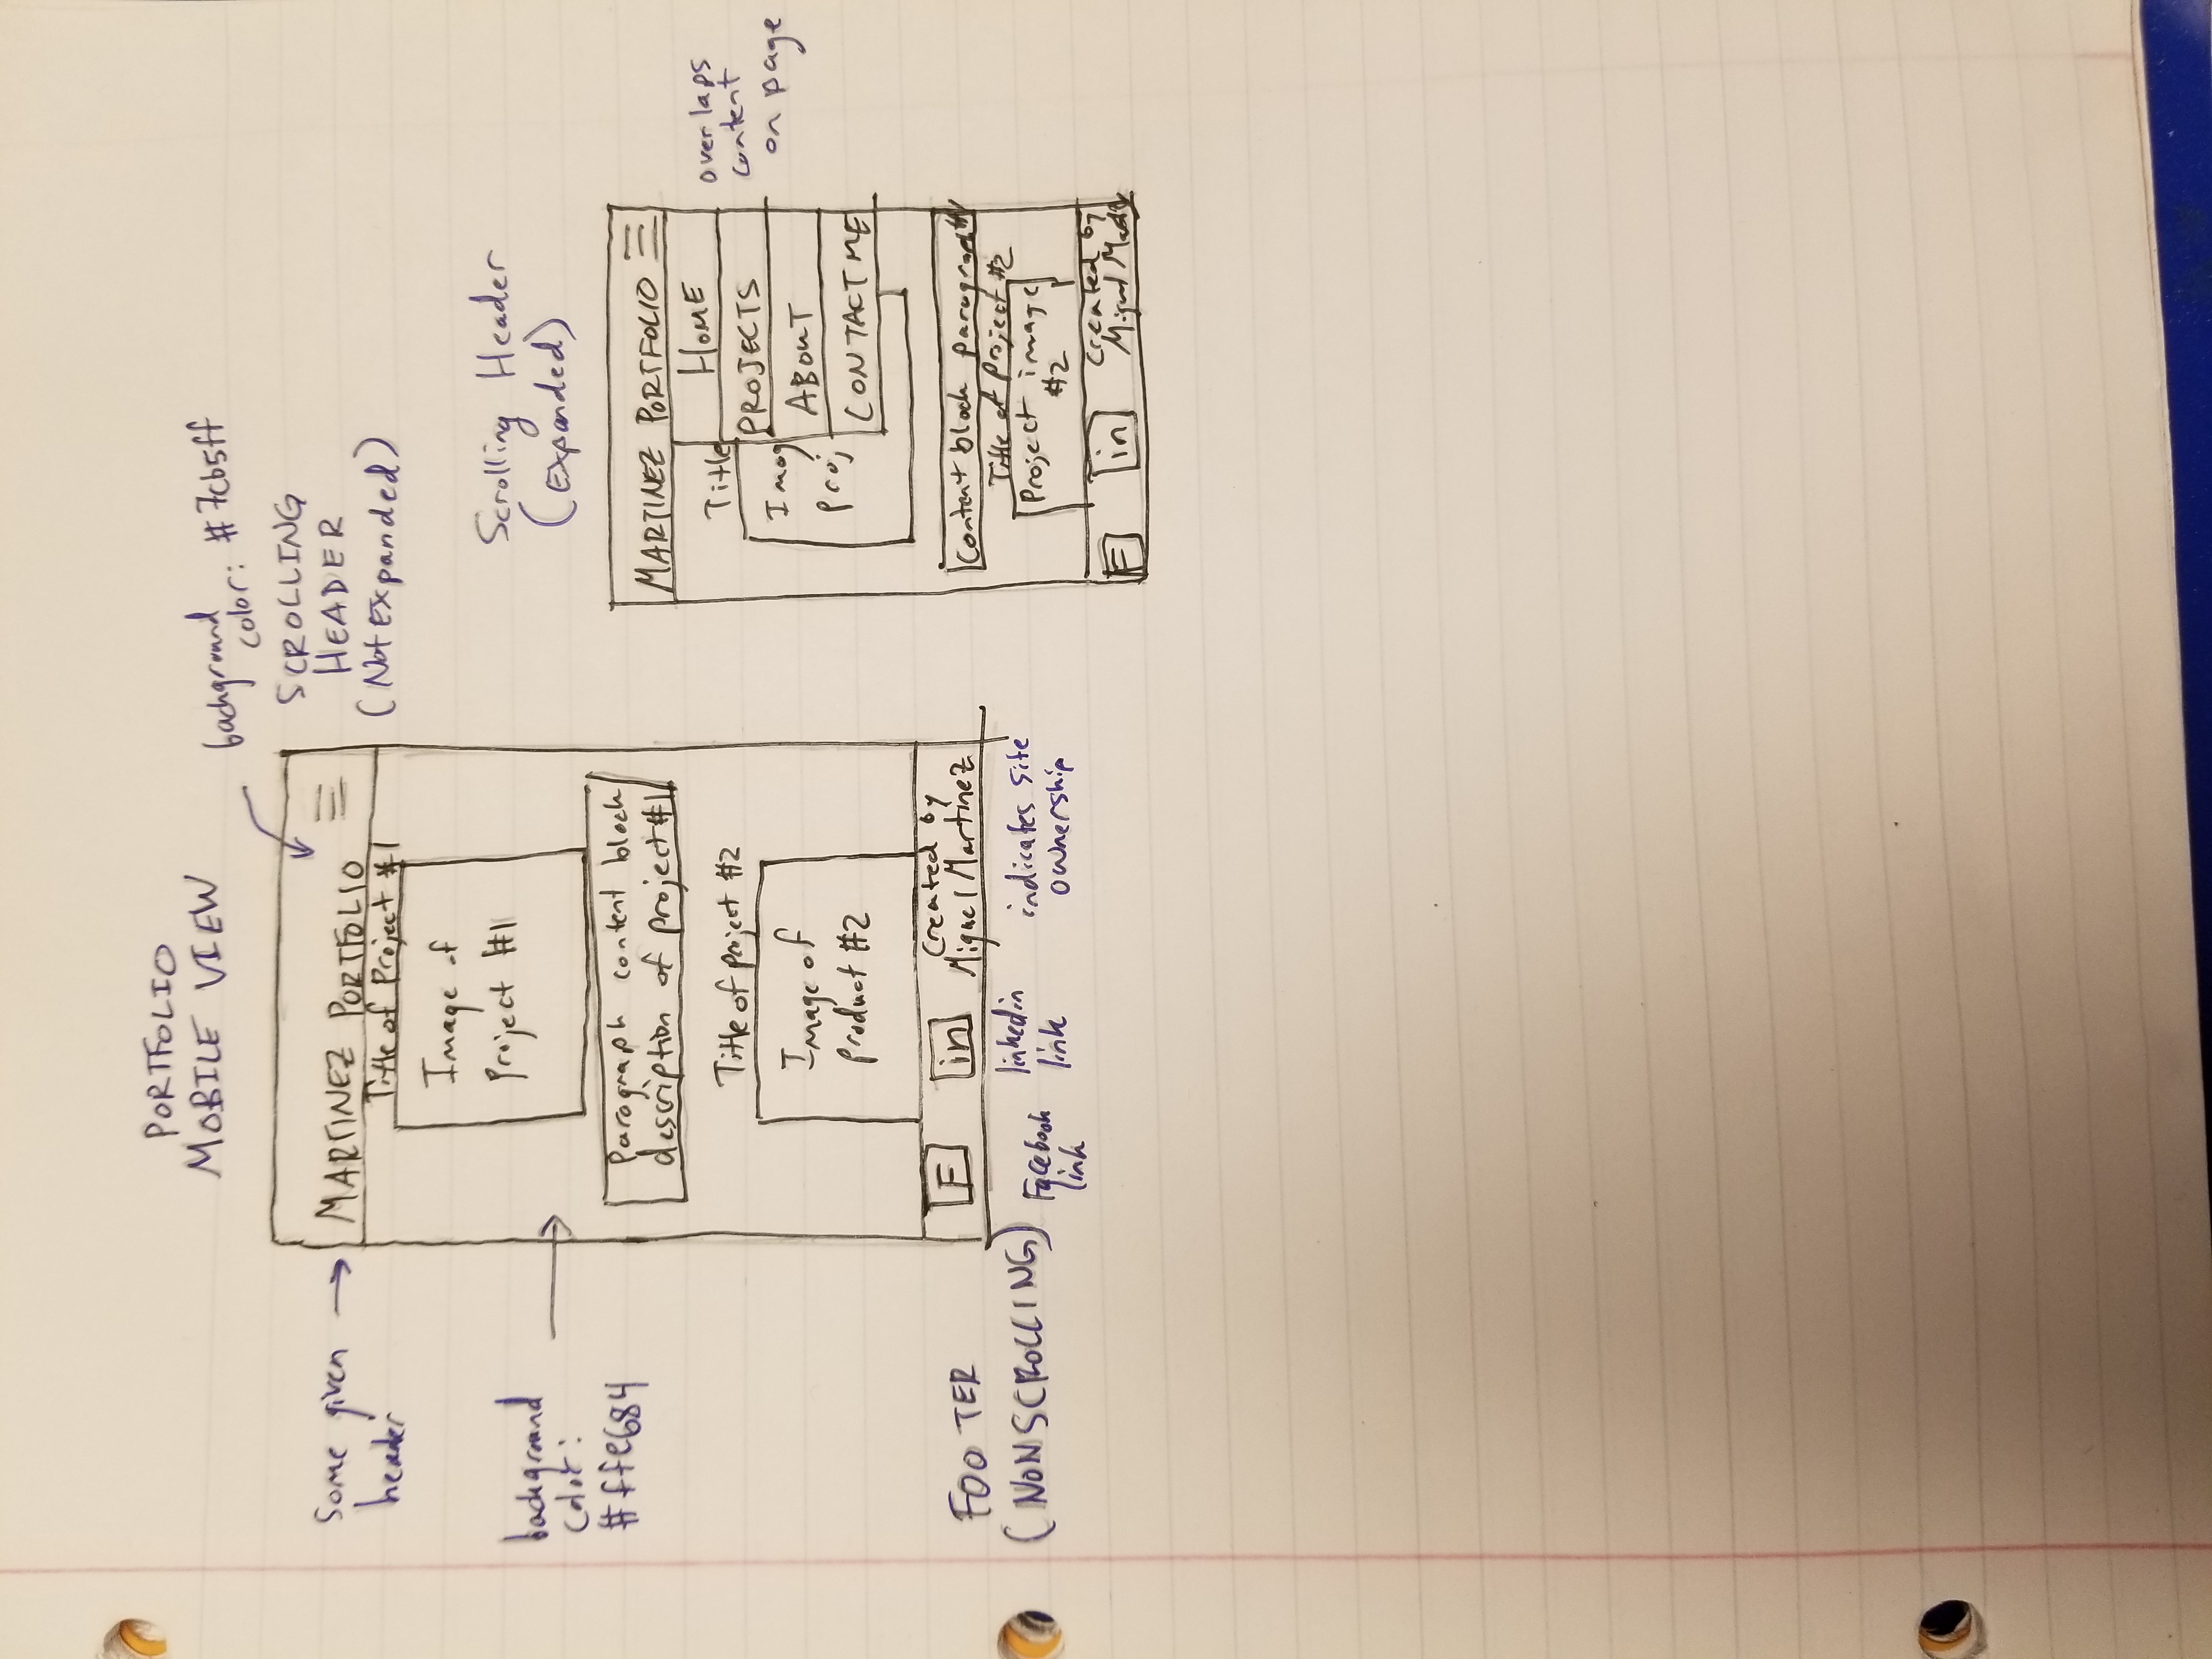 PORTFOLIO
MOBILE VIEW
background
color: #7cb5ff
SCROLLING
HEADER
(Not Expanded)
Some given
header
MARTINEZ PORTFOLIO
Title of Project #1
Image of
project #1
background
color:
#ffe684
Paragraph content block
description of project #1
Title of project #2
Image of
product #2
F
in
Created by
Miguel Martinez
FOOTER
(NONSCROLLING)
Facebook
link
linkedin
link
indicates site
ownership
Scrolling Header
(Expanded)
MARTINEZ PORTFOLIO
Title
HOME
PROJECTS
ABOUT
CONTACT ME
Imag
proj
overlaps
content
on page
Content block paragraph #1
Title of Project #2
Project image
#2
F
in
Created by
Miguel